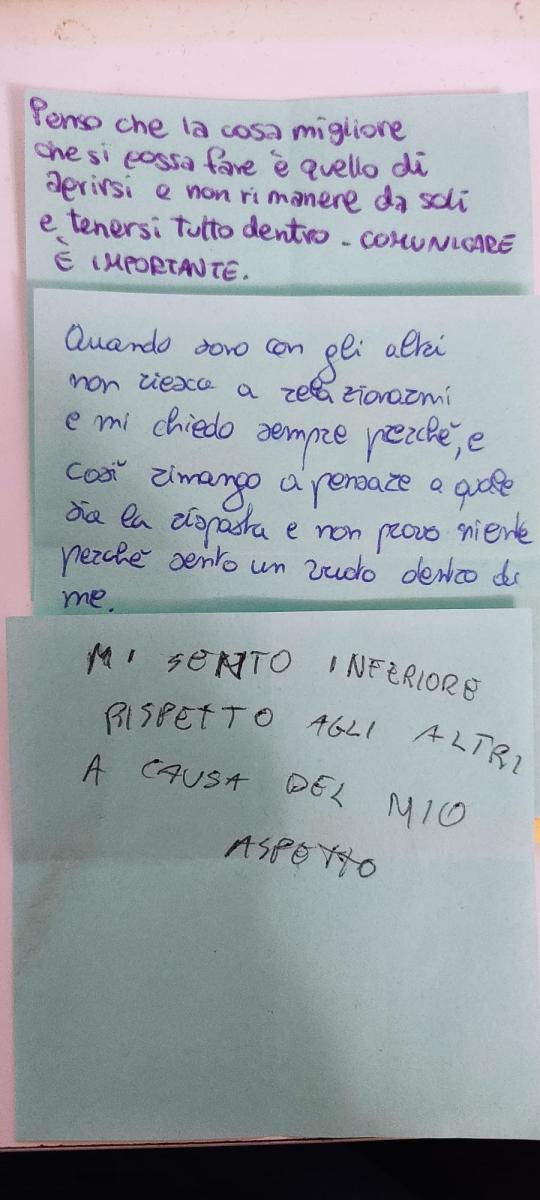 Penso che la cosa migliore
che si possa fare è quello di
aprirsi e non rimanere da soli
e tenersi tutto dentro - COMUNICARE
È IMPORTANTE.
Quando sono con gli altri
non riesco a relazionarmi
e mi chiedo sempre perché, e
così rimango a pensare a quale
sia la risposta e non provo niente
perché sento un vuoto dentro di
me.
MI SENTO INFERIORE
RISPETTO AGLI ALTRI
A CAUSA DEL MIO
ASPETTO